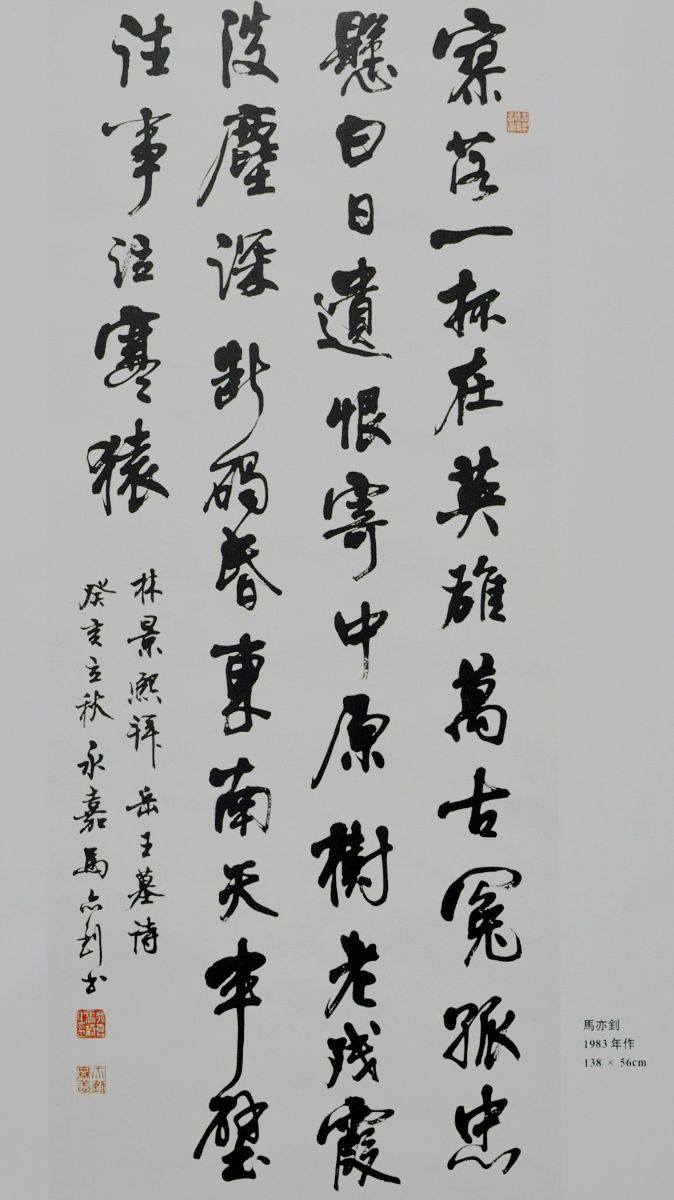 寥落一抔在英雄萬古冤孤忠
懸白日遺恨寄中原樹老殘霞
沒塵深斷碣昏東南天半壁
往事泣寒猿
林景熙拜岳王墓詩
癸亥立秋永嘉馬亦釗書
馬亦釗
1983年作
138 × 56cm